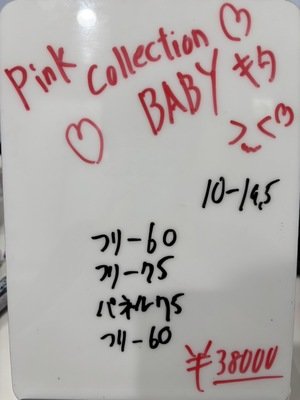 Pink Collection♡
BABY キラ
♡
10-19,5
フリー60
フリー75
パネル75
フリー60
¥38000